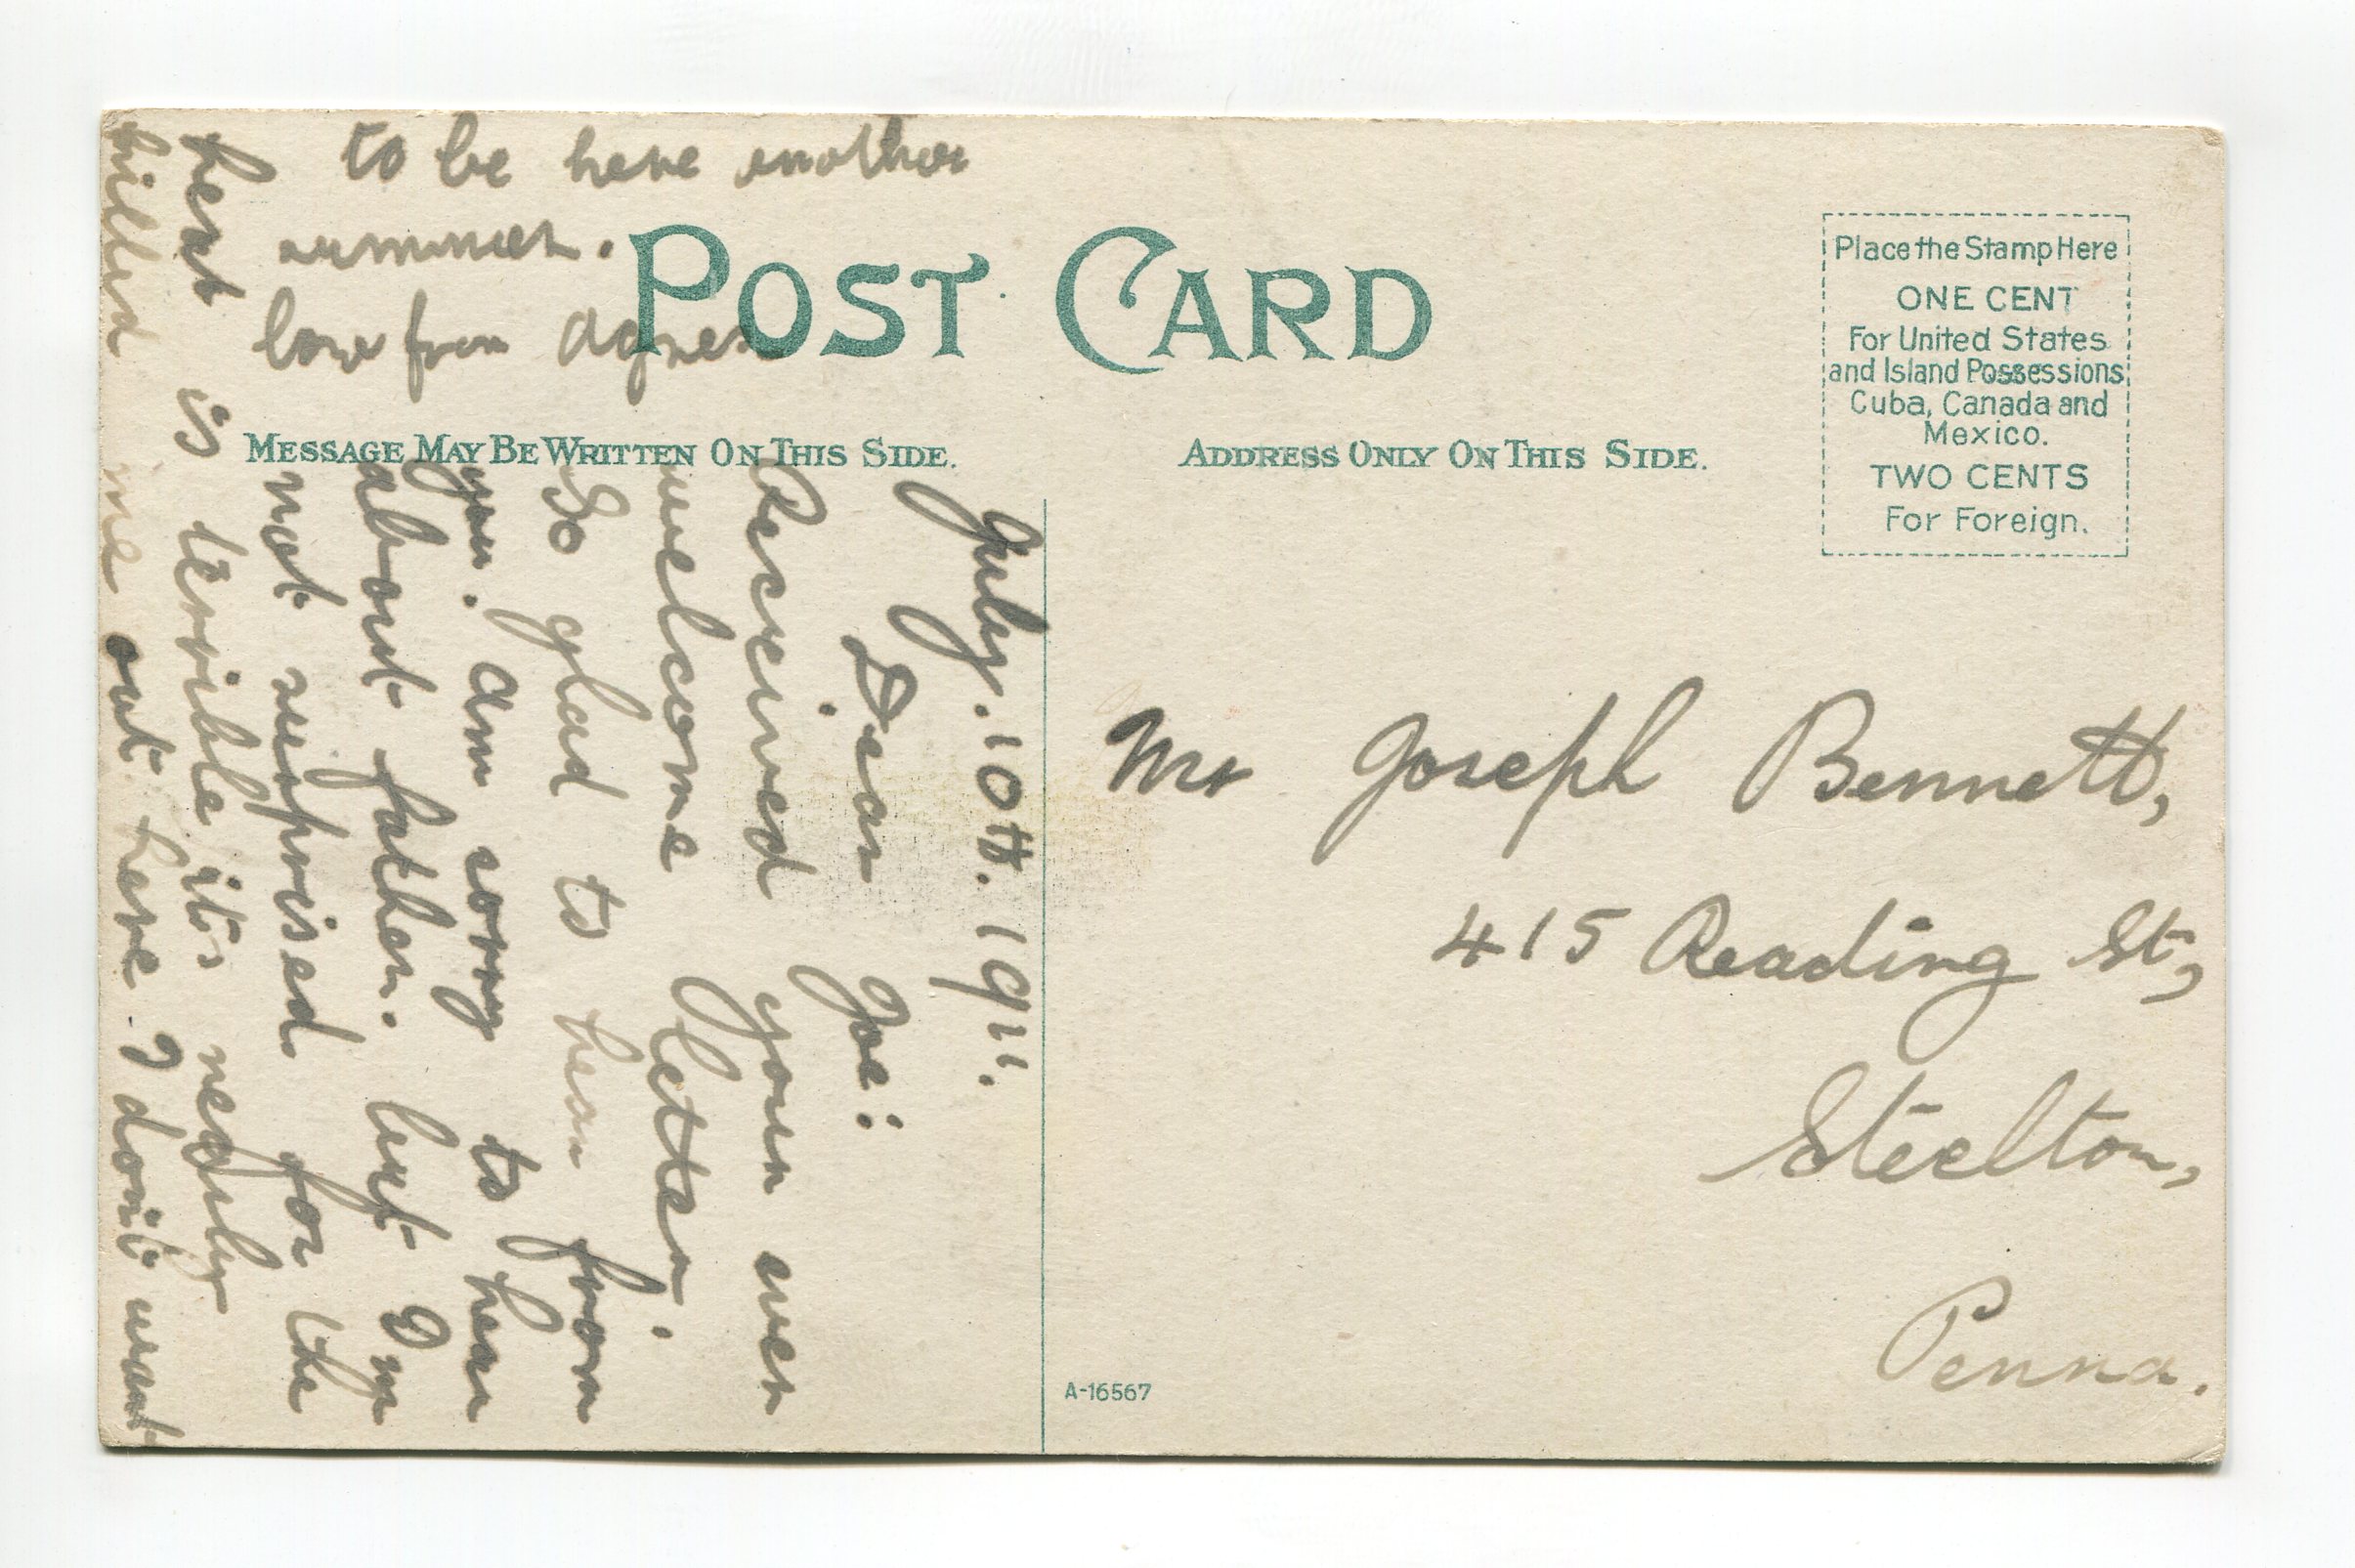 POST CARD
MESSAGE MAY BE WRITTEN ON THIS SIDE.
ADDRESS ONLY ON THIS SIDE.
Place the Stamp Here
ONE CENT
For United States
and Island Possessions
Cuba, Canada and
Mexico.
TWO CENTS
For Foreign.
July. 10th. 1911.
Dear Joe:
Received your ever
welcome letter.
So glad to hear from
you. am sorry to hear
about father. but I'm
not surprised for the
heat is terrible it's nearly
killed me out here. I don't want
to be here another
summer.
love from Agnes
Mr Joseph Bennett,
415 Reading St,
Steelton,
Penna.
A-16567